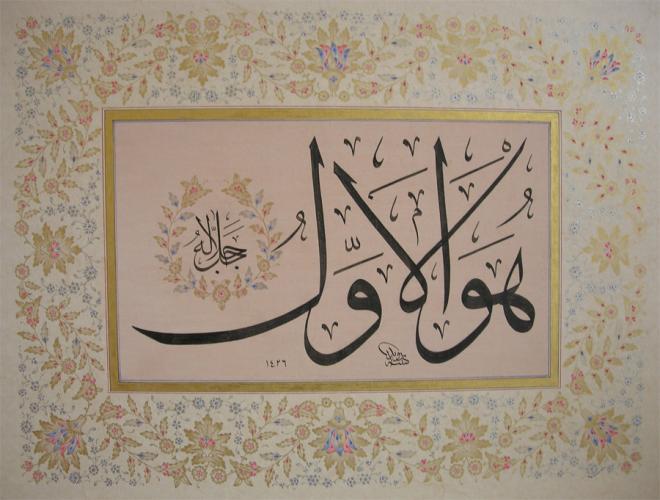 هُوَ الْاَوَّلُ
جَلَّ جَلَالُهُ
١٤٢٦